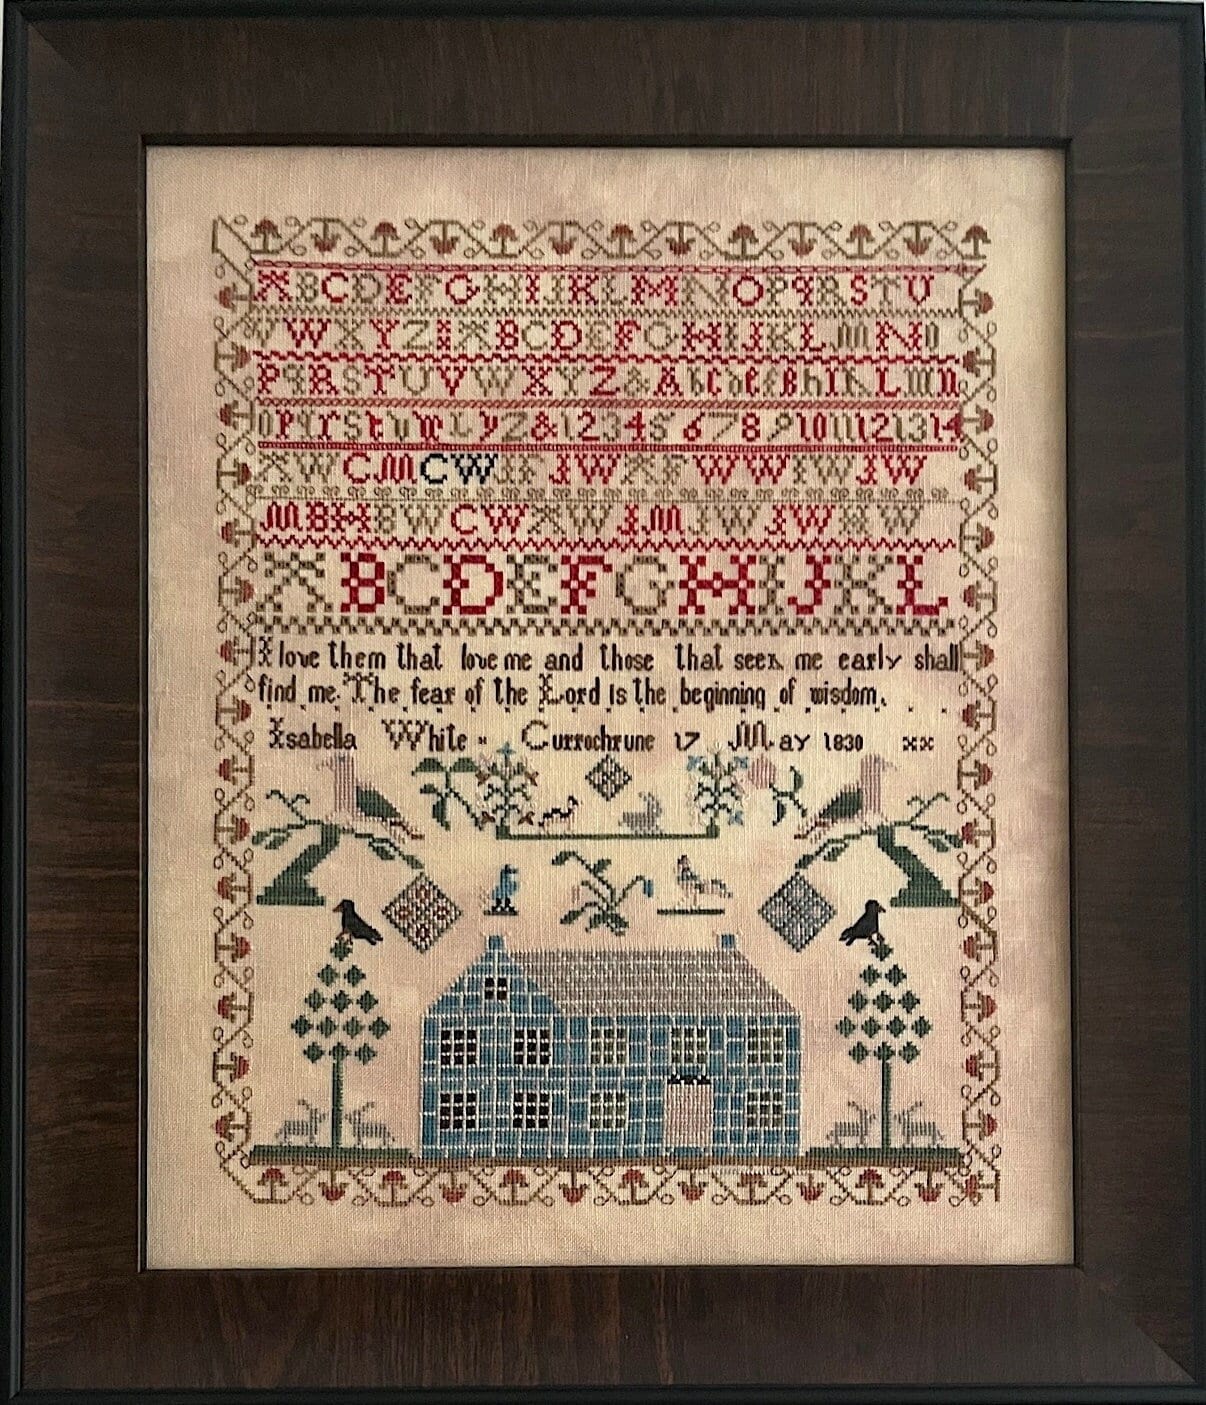 A B C D E F G H I J K L M N O P q R S T U
V W X Y Z I A B C D E F G H I J K L M N O
P q R S T U V W X Y Z & A b C d E f g h I k L m n
O P q r S t u w y Z & 1 2 3 4 5 6 7 8 9 10 11 12 13 14
A W C M C W J F J W A F W W I W J W
M B H B W C W A W J M J W J W A W
A B C D E F G H I J K L
I love them that love me and those that seek me early shall
find me. The fear of the Lord is the beginning of wisdom.
Isabella White Currochrune 17 May 1830 xx